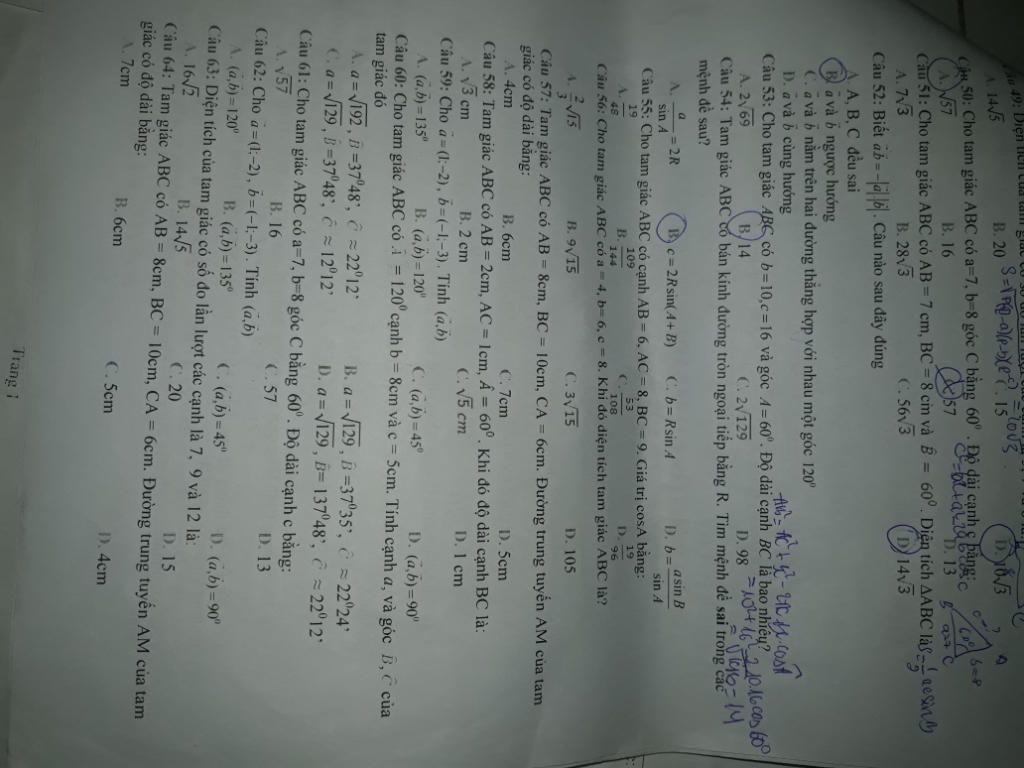 49: Diện tích của tam giác
A. 14√5 B. 20 C. 15 D. 16√3
Câu 50: Cho tam giác ABC có a=7, b=8 góc C bằng 60⁰. Độ dài cạnh c bằng:
A. √57 B. 16 C. 57 D. 13
Câu 51: Cho tam giác ABC có AB = 7 cm, BC = 8 cm và B̂ = 60⁰. Diện tích ΔABC là
A. 7√3 B. 28√3 C. 56√3 D. 14√3
Câu 52: Biết a⃗b⃗ = −|a⃗|.|b⃗|. Câu nào sau đây đúng
A. A, B, C đều sai
B. a⃗ và b⃗ ngược hướng
C. a⃗ và b⃗ nằm trên hai đường thẳng hợp với nhau một góc 120⁰
D. a⃗ và b⃗ cùng hướng
Câu 53: Cho tam giác ABC có b = 10, c = 16 và góc A = 60⁰. Độ dài cạnh BC là bao nhiêu?
A. 2√69 B. 14 C. 2√129 D. 98
= 10² + 16² − 2.10.16 cos 60⁰
= 14
Câu 54: Tam giác ABC có bán kính đường tròn ngoại tiếp bằng R. Tìm mệnh đề sai trong các
mệnh đề sau?
A. a/sin A = 2R B. c = 2R sin(A + B) C. b = R sin A D. b = a sin B/sin A
Câu 55: Cho tam giác ABC có cạnh AB = 6, AC = 8, BC = 9. Giá trị cosA bằng:
A. 19/48 B. 109/144 C. 53/108 D. 19/96
Câu 56: Cho tam giác ABC có a = 4, b = 6, c = 8. Khi đó diện tích tam giác ABC là?
A. 2/3 √15 B. 9√15 C. 3√15 D. 105
Câu 57: Tam giác ABC có AB = 8cm, BC = 10cm, CA = 6cm. Đường trung tuyến AM của tam
giác có độ dài bằng:
A. 4cm B. 6cm C. 7cm D. 5cm
Câu 58: Tam giác ABC có AB = 2cm, AC = 1cm, Â = 60⁰. Khi đó độ dài cạnh BC là:
A. √3 cm B. 2 cm C. √5 cm D. 1 cm
Câu 59: Cho a⃗ = (1;−2), b⃗ = (−1;−3). Tính (a⃗,b⃗)
A. (a⃗,b⃗) = 135⁰ B. (a⃗,b⃗) = 120⁰ C. (a⃗,b⃗) = 45⁰ D. (a⃗,b⃗) = 90⁰
Câu 60: Cho tam giác ABC có Â = 120⁰ cạnh b = 8cm và c = 5cm. Tính cạnh a, và góc B̂, Ĉ của
tam giác đó
A. a = √192, B̂ = 37⁰48', Ĉ ≈ 22⁰12' B. a = √129, B̂ = 37⁰35', Ĉ ≈ 22⁰24'
C. a = √129, B̂ = 37⁰48', Ĉ ≈ 12⁰12' D. a = √129, B̂ = 137⁰48', Ĉ ≈ 22⁰12'
Câu 61: Cho tam giác ABC có a=7, b=8 góc C bằng 60⁰. Độ dài cạnh c bằng:
A. √57 B. 16 C. 57 D. 13
Câu 62: Cho a⃗ = (1;−2), b⃗ = (−1;−3). Tính (a⃗,b⃗)
A. (a⃗,b⃗) = 120⁰ B. (a⃗,b⃗) = 135⁰ C. (a⃗,b⃗) = 45⁰ D. (a⃗,b⃗) = 90⁰
Câu 63: Diện tích của tam giác có số đo lần lượt các cạnh là 7, 9 và 12 là:
A. 16√2 B. 14√5 C. 20 D. 15
Câu 64: Tam giác ABC có AB = 8cm, BC = 10cm, CA = 6cm. Đường trung tuyến AM của tam
giác có độ dài bằng:
A. 7cm B. 6cm C. 5cm D. 4cm
Trang 1